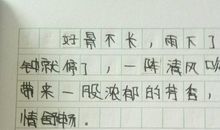 好景不长，雨下了
钟就停了，一阵清风
带来一股浓郁的芳香，
情